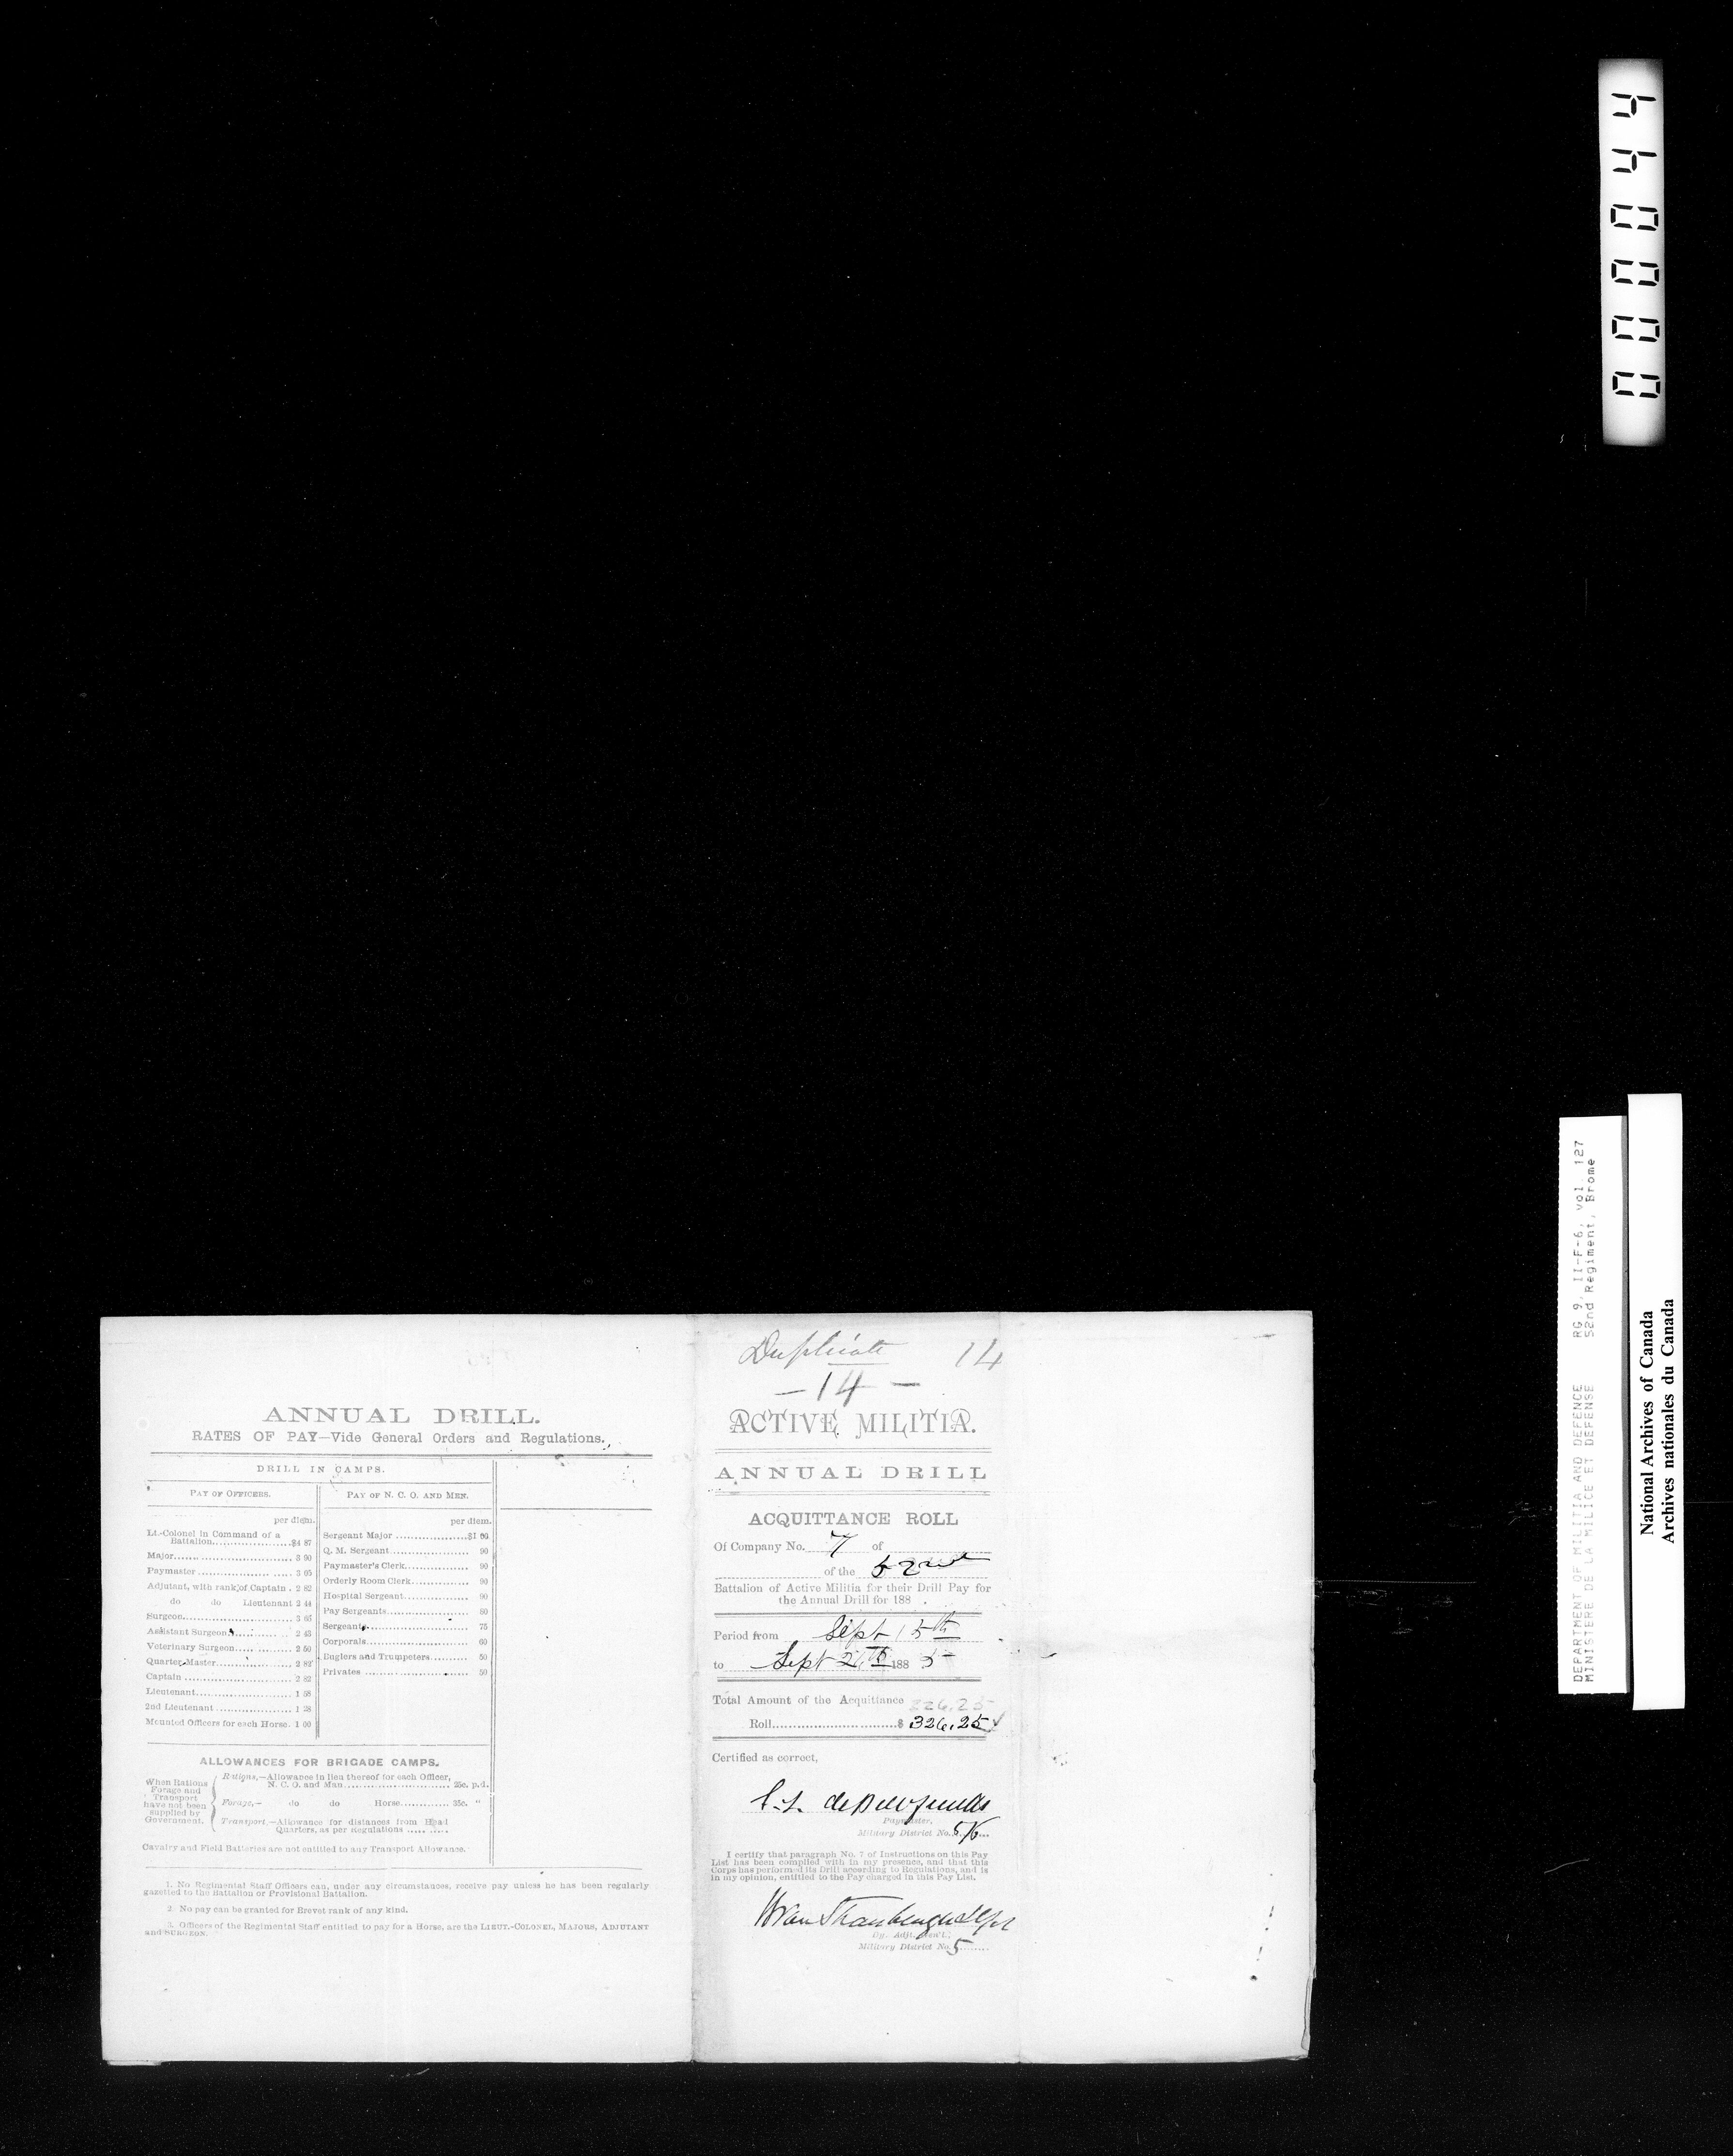 000044
DEPARTMENT OF MILITIA AND DEFENCE RG 9, II-F-6, vol. 127
MINISTERE DE LA MILICE ET DEFENSE 52nd Regiment, Brome
National Archives of Canada
Archives nationales du Canada
ANNUAL DRILL.
RATES OF PAY—Vide General Orders and Regulations.
DRILL IN CAMPS.
PAY OF OFFICERS.
per diem.
Lt.-Colonel in Command of a
Battalion..............$4 87
Major.............. 3 90
Paymaster.............. 3 05
Adjutant, with rank of Captain . 2 82
do do Lieutenant 2 44
Surgeon.............. 3 65
Assistant Surgeon.............. 2 43
Veterinary Surgeon.............. 2 50
Quarter-Master.............. 2 82
Captain.............. 2 82
Lieutenant.............. 1 58
2nd Lieutenant.............. 1 28
Mounted Officers for each Horse. 1 00
PAY OF N. C. O. AND MEN.
per diem.
Sergeant Major..............$1 00
Q. M. Sergeant.............. 90
Paymaster's Clerk.............. 90
Orderly Room Clerk.............. 90
Hospital Sergeant.............. 90
Pay Sergeants.............. 80
Sergeants.............. 75
Corporals.............. 60
Buglers and Trumpeters.............. 50
Privates.............. 50
ALLOWANCES FOR BRIGADE CAMPS.
When Rations
Forage and
Transport
have not been
supplied by
Government.
Rations,—Allowance in lieu thereof for each Officer,
N. C. O. and Man.............. 25c. p.d.
Forage,— do do Horse............ 35c. "
Transport,—Allowance for distances from Head
Quarters, as per Regulations ..... .....
Cavalry and Field Batteries are not entitled to any Transport Allowance.
1. No Regimental Staff Officers can, under any circumstances, receive pay unless he has been regularly
gazetted to the Battalion or Provisional Battalion.
2. No pay can be granted for Brevet rank of any kind.
3. Officers of the Regimental Staff entitled to pay for a Horse, are the LIEUT.-COLONEL, MAJORS, ADJUTANT
and SURGEON.
Duplicate 14
—14—
ACTIVE MILITIA.
ANNUAL DRILL
ACQUITTANCE ROLL
Of Company No. 7 of
of the 52nd
Battalion of Active Militia for their Drill Pay for
the Annual Drill for 188 .
Period from Sept 15th
to Sept 26th 188 5
Total Amount of the Acquittance 326.25
Roll..............$ 326.25
Certified as correct,
Paymaster,
Military District No. 5/6
I certify that paragraph No. 7 of Instructions on this Pay
List has been complied with in my presence, and that this
Corps has performed its Drill according to Regulations, and is
in my opinion, entitled to the Pay charged in this Pay List.
Dy. Adjt. Gen'l.,
Military District No. 5